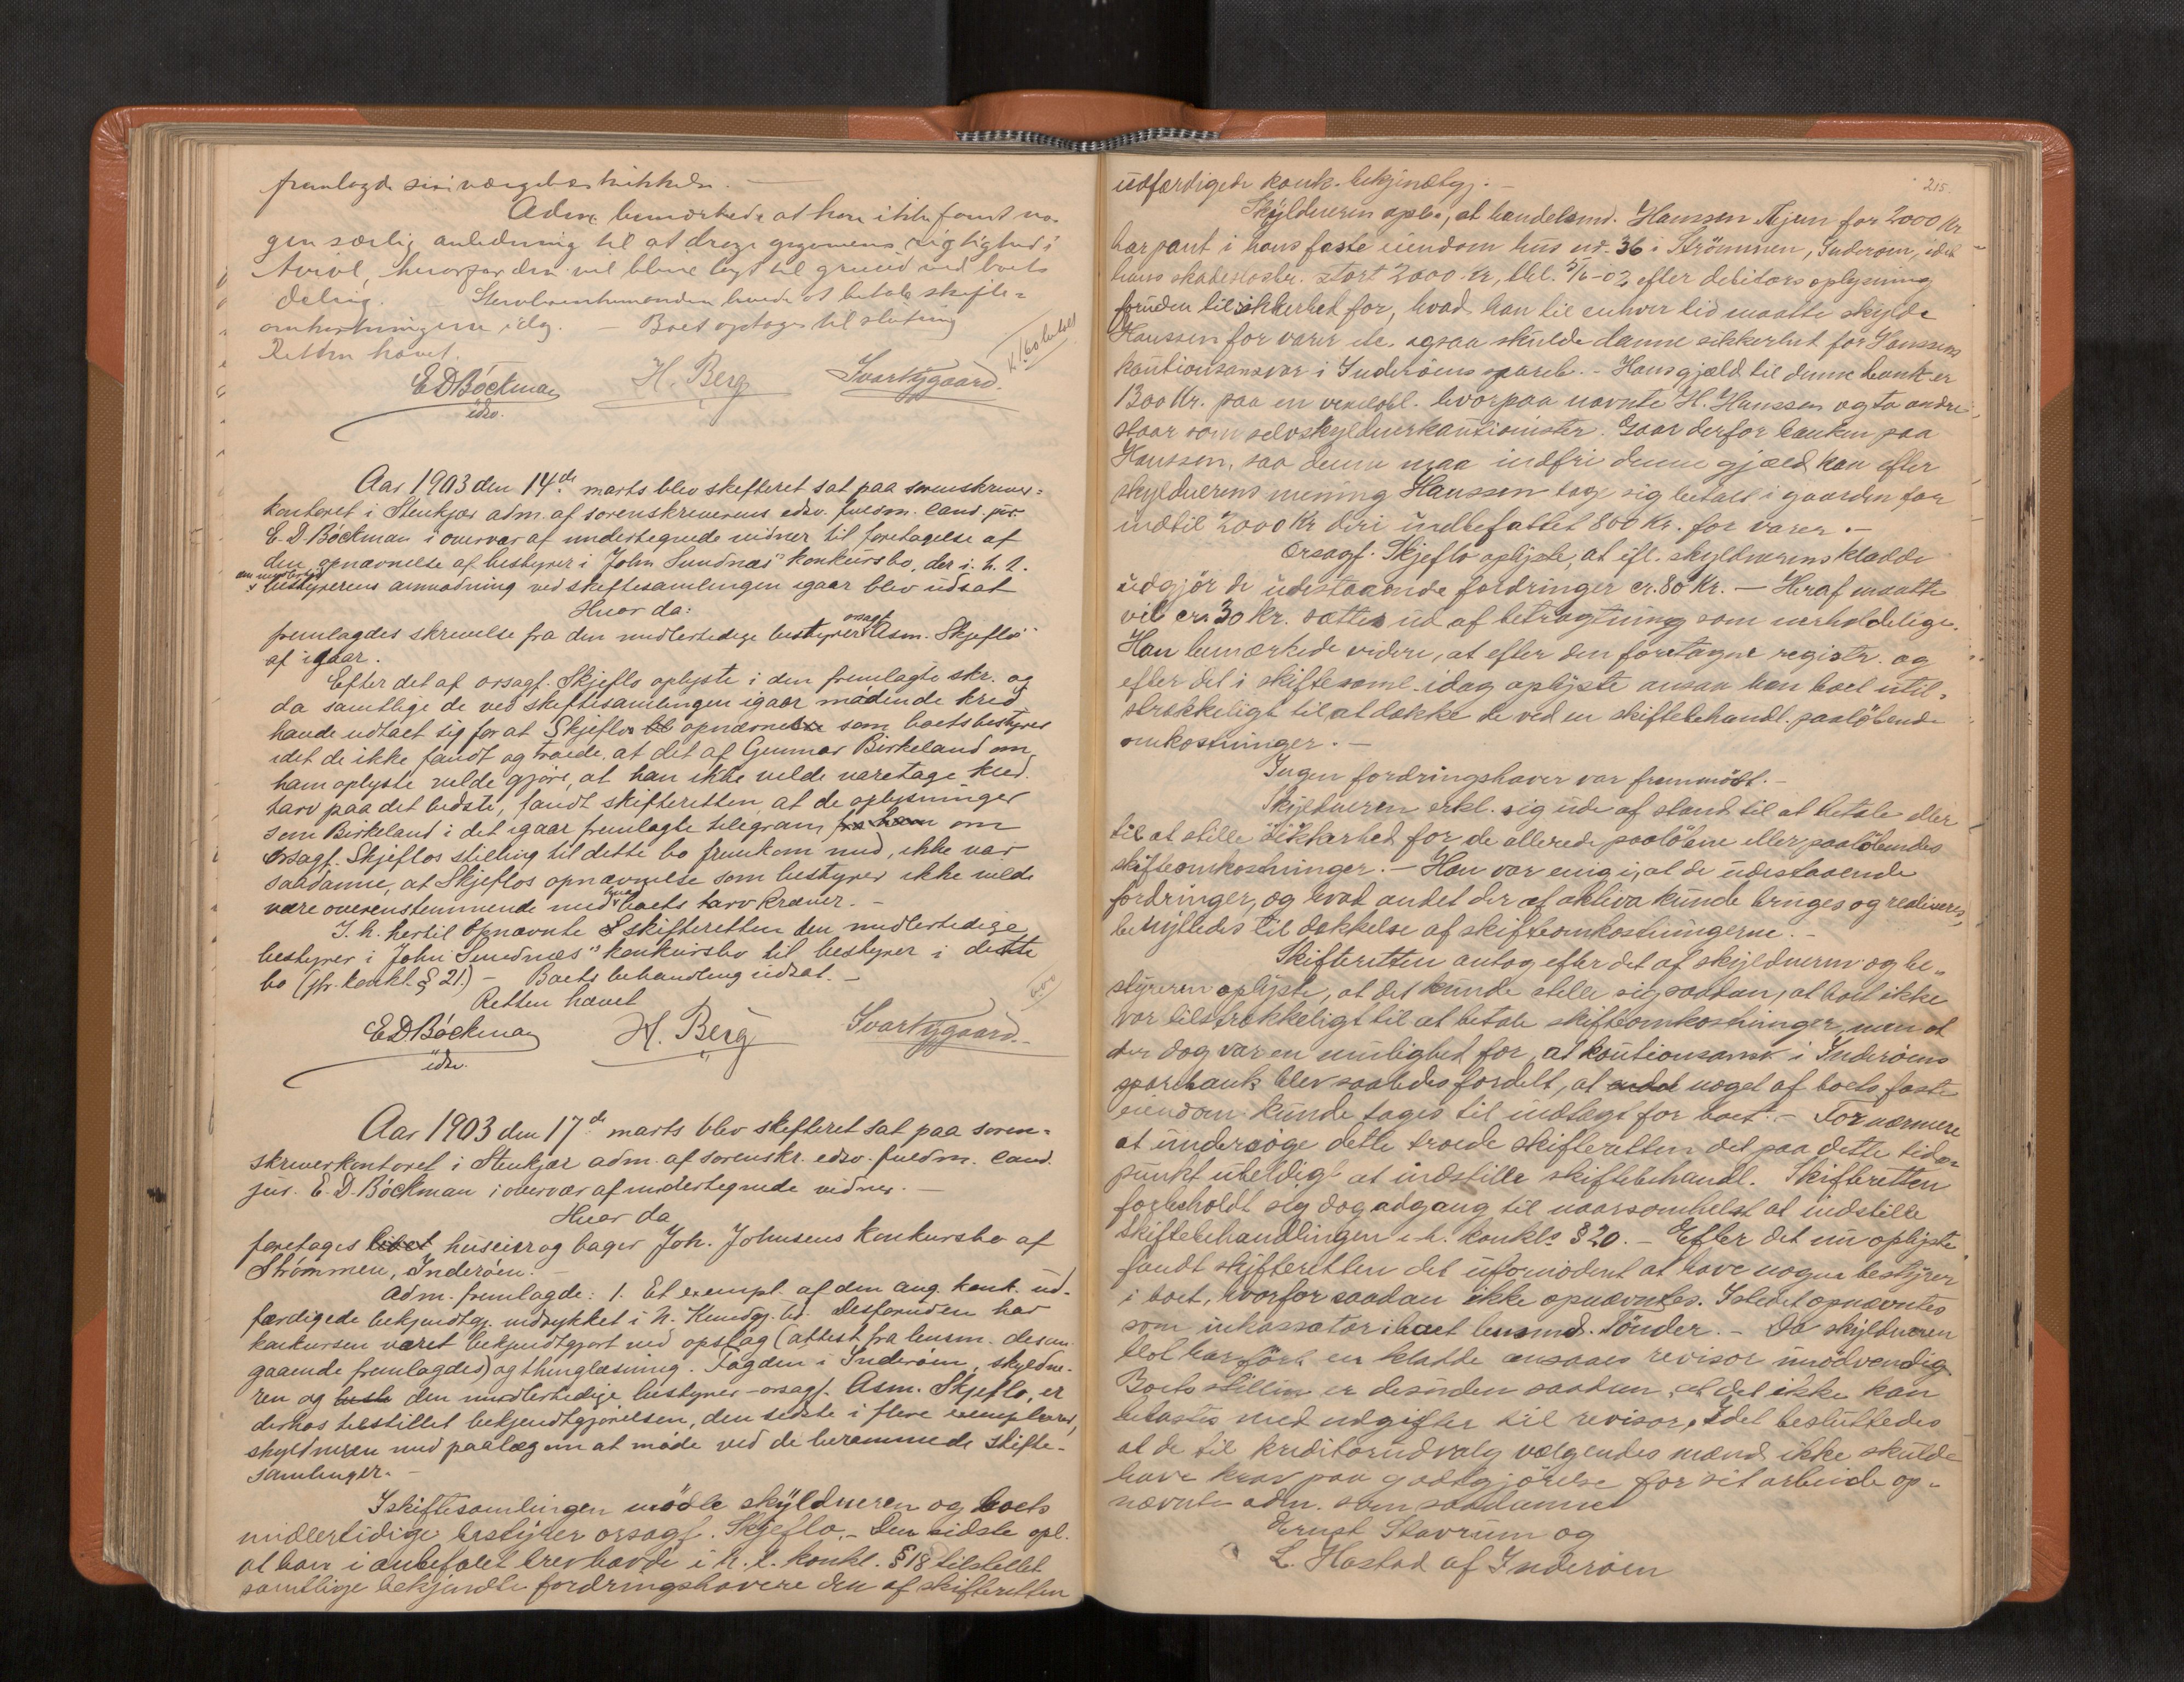 fremlagde sin værgebeskikkelse. —
Adm. bemærkede at han ikke fandt no-
gen særlig anledning til at drage opgavens rigtighed i
tvivl, hvorfor den vil blive lagt til grund ved boets
deling. — Stervboenkemanden havde at betale skifte=
omkostningerne idag. — Boet optages til slutning
Retten hævet.
K. 1.60 betalt
EDBöckman H. Berg Ivar Nygaard.
edsv.
Aar 1903 den 14de marts blev skifteret sat paa sorenskriver=
kontoret i Stenkjær adm. af sorenskriverens edsv. fuldm. cand. jur.
E. D. Böckman i overvær af undertegnede vidner til foretagelse af
den opnævnelse af bestyrer i John Sundnæs' konkursbo, der i. h. t.
den midlertidige
bestyrerens anmodning ved skiftesamlingen igaar blev udsat
Hvor da:
orsagf.
fremlagdes skrivelse fra den midlertidige bestyrer Asm. Skjeflo
af igaar.
Efter det af orsagf. Skjeflo oplyste i den fremlagte skr. og
da samtlige de ved skiftesamlingen igaar mødende kred.
havde udtalt sig for at Skjeflo bl opnævnes som boets bestyrer
idet de ikke fandt og troede, at det af Gunnar Birkeland om
ham oplyste vilde gjøre, at han ikke vilde varetage kred.
tarv paa det bedste, fandt skifteretten at de oplysninger
som Birkeland i det igaar fremlagte telegram fra ham om
orsagf. Skjeflos stilling til dette bo fremkom med, ikke var
saadanne, at Skjeflos opnævnelse som bestyrer ikke vilde
hvad
være overenstemmende med boets tarv kræver. —
I. h. hertil opnævnte skifteretten den midlertidige
bestyrer i John Sundnæs' konkursbo til bestyrer i dette
bo (jfr. konkl. § 21.) — Boets behandling udsat. —
Retten hævet
EDBöckman H. Berg Ivar Nygaard.
edsv.
Aar 1903 den 17de marts blev skifteret sat paa soren=
skriverkontoret i Stenkjær adm. af sorenskr. edsv. fuldm. cand.
jur. E. D. Böckman i overvær af undertegnede vidner. —
Hvor da
foretages huseier og bager Joh. Johnsens konkursbo af
Strömmen, Inderøen. —
Adm. fremlagde: 1. Et exempl. af den ang. konk. ud-
færdigede bekjendtgj. indrykket i N. Kundgj. tid. Desforuden har
konkursen været bekjendtgjort ved opslag (attest fra lensm. desan-
gaaende fremlagdes) og thinglæsning. Fogden i Inderøen, skyldne-
ren og den midlertidige bestyrer orsagf. Asm. Skjeflo, er
derhos tilstillet bekjendtgjørelsen, den sidste i flere exemplarer,
skyldneren med paalæg om at møde ved de berammede skifte-
samlinger. —
I skiftesamlingen mødte skyldneren og boets
midlertidige bestyrer orsagf. Skjeflo. — Den sidste opl.
at han i anbefalet brev havde i h. t. konkl. § 18 tilstillet
samtlige bekjendte fordringshavere den af skifteretten
215.
udfærdigede konk. bekjendtgj. —
Skyldneren oplo, at handelsmd. Hanssen for 2000 Kr
har pant i hans faste eiendom hus no. 36 i Strömmen, Inderøen, idet
hans skadesløsbr. stort 2000 Kr, thl. 5/6 - 02, efter debitors oplysning
foruden til sikkerhet for, hvad han til enhver tid maatte skylde
Hanssen for varer etc. ogsaa skulde danne sikkerhet for Hanssens
kautionsansvar i Inderøens spareb. — Hans gjæld til denne bank er
1300 Kr. paa en vexelobl. hvorpaa nævnte H. Hanssen og to andre
staar som selvskyldnerkautionister. Gaar derfor banken paa
Hanssen, saa denne maa indfri denne gjæld, kan efter
skyldnerens mening Hanssen tage sig betalt i gaarden for
indtil 2000 Kr deri indbefattet 800 Kr. for varer. —
Orsagf. Skjeflo oplyste, at ifl. skyldnerens kladde
udgjör de udestaaende fordringer ca. 80 Kr. — Heraf maatte
vel ca. 30 Kr. sættes ud af betragtning som uerholdelige.
Han bemærkede videre, at efter den foretagne registr. og
efter det i skiftesaml. idag oplyste ansaa han boet util-
strækkeligt til at dække de ved en skiftebehandl. paaløbende
omkostninger. —
Ingen fordringshaver var fremmødt. —
Skyldneren erkl. sig ude af stand til at betale eller
til at stille sikkerhed for de allerede paaløbne eller paaløbendes
skifteomkostninger. — Han var enig i, at de udestaaende
fordringer, og hvad andet der af aktiva kunde bruges og realiseres,
benyttedes til dækkelse af skifteomkostningerne. —
Skifteretten antog efter det af skyldneren og be-
styreren oplyste, at det kunde stille sig saadan, at boet ikke
var tilstrækkeligt til at betale skifteomkostninger, men at
der dog var en mulighet for, at kautionsansv. i Inderøens
sparebank blev saaledes fordelt, at noget af boets faste
eiendom kunde tages til indtægt for boet. — For nærmere
at undersøge dette troede skifteretten det paa dette tids-
punkt uheldigt at indstille skiftebehandl. Skifteretten
forbeholdt sig dog adgang til naarsomhelst at indstille
skiftebehandlingen i h. konkls § 20. — Efter det nu oplyste
fandt skifteretten det ufornødent at have nogen bestyrer
i boet, hvorfor saadan ikke opnævntes. Istedet opnævntes
som inkassator i boet lensmd. Tönder. — Da skyldneren
blot har ført en kladde ansaaes revisor unødvendig.
Boets stilling er desuden saadan, at det ikke kan
belastes med udgifter til revisor. Idet besluttedes
at de til kreditorudvalg valgendes mænd ikke skulde
have krav paa godtgjörelse for sit arbeide op-
nævnte adm. som saadanne
Ernst Stavrum og
L. Hastad af Inderöen